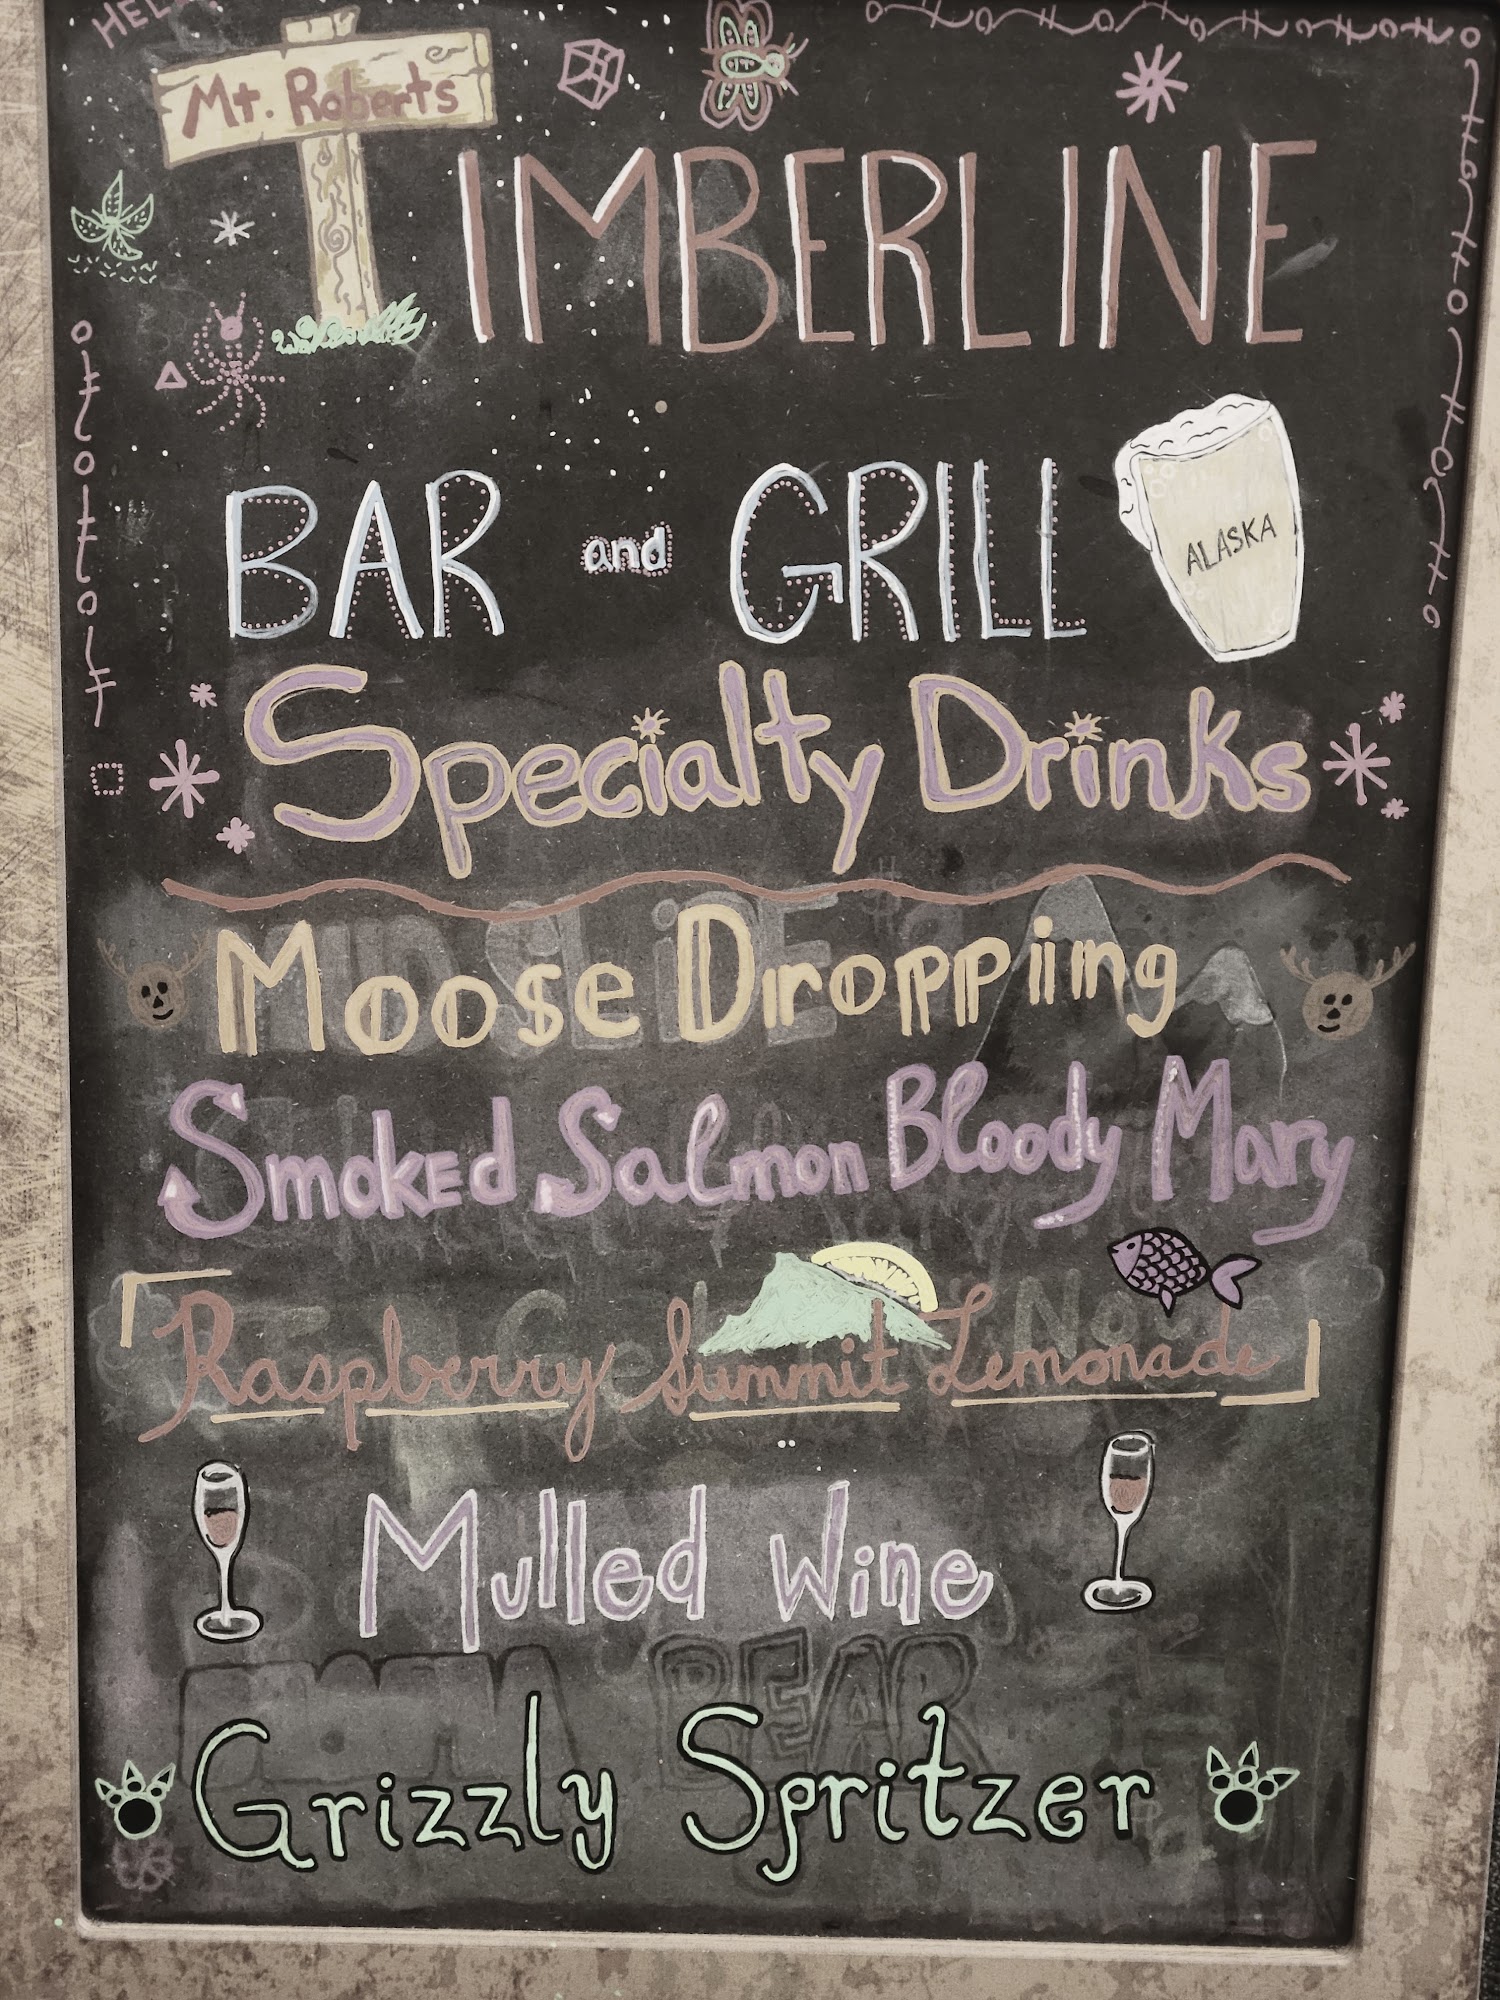 Mt. Roberts
TIMBERLINE
BAR and GRILL
ALASKA
Specialty Drinks
Moose Dropping
Smoked Salmon Bloody Mary
Raspberry Summit Lemonade
Mulled Wine
Grizzly Spritzer